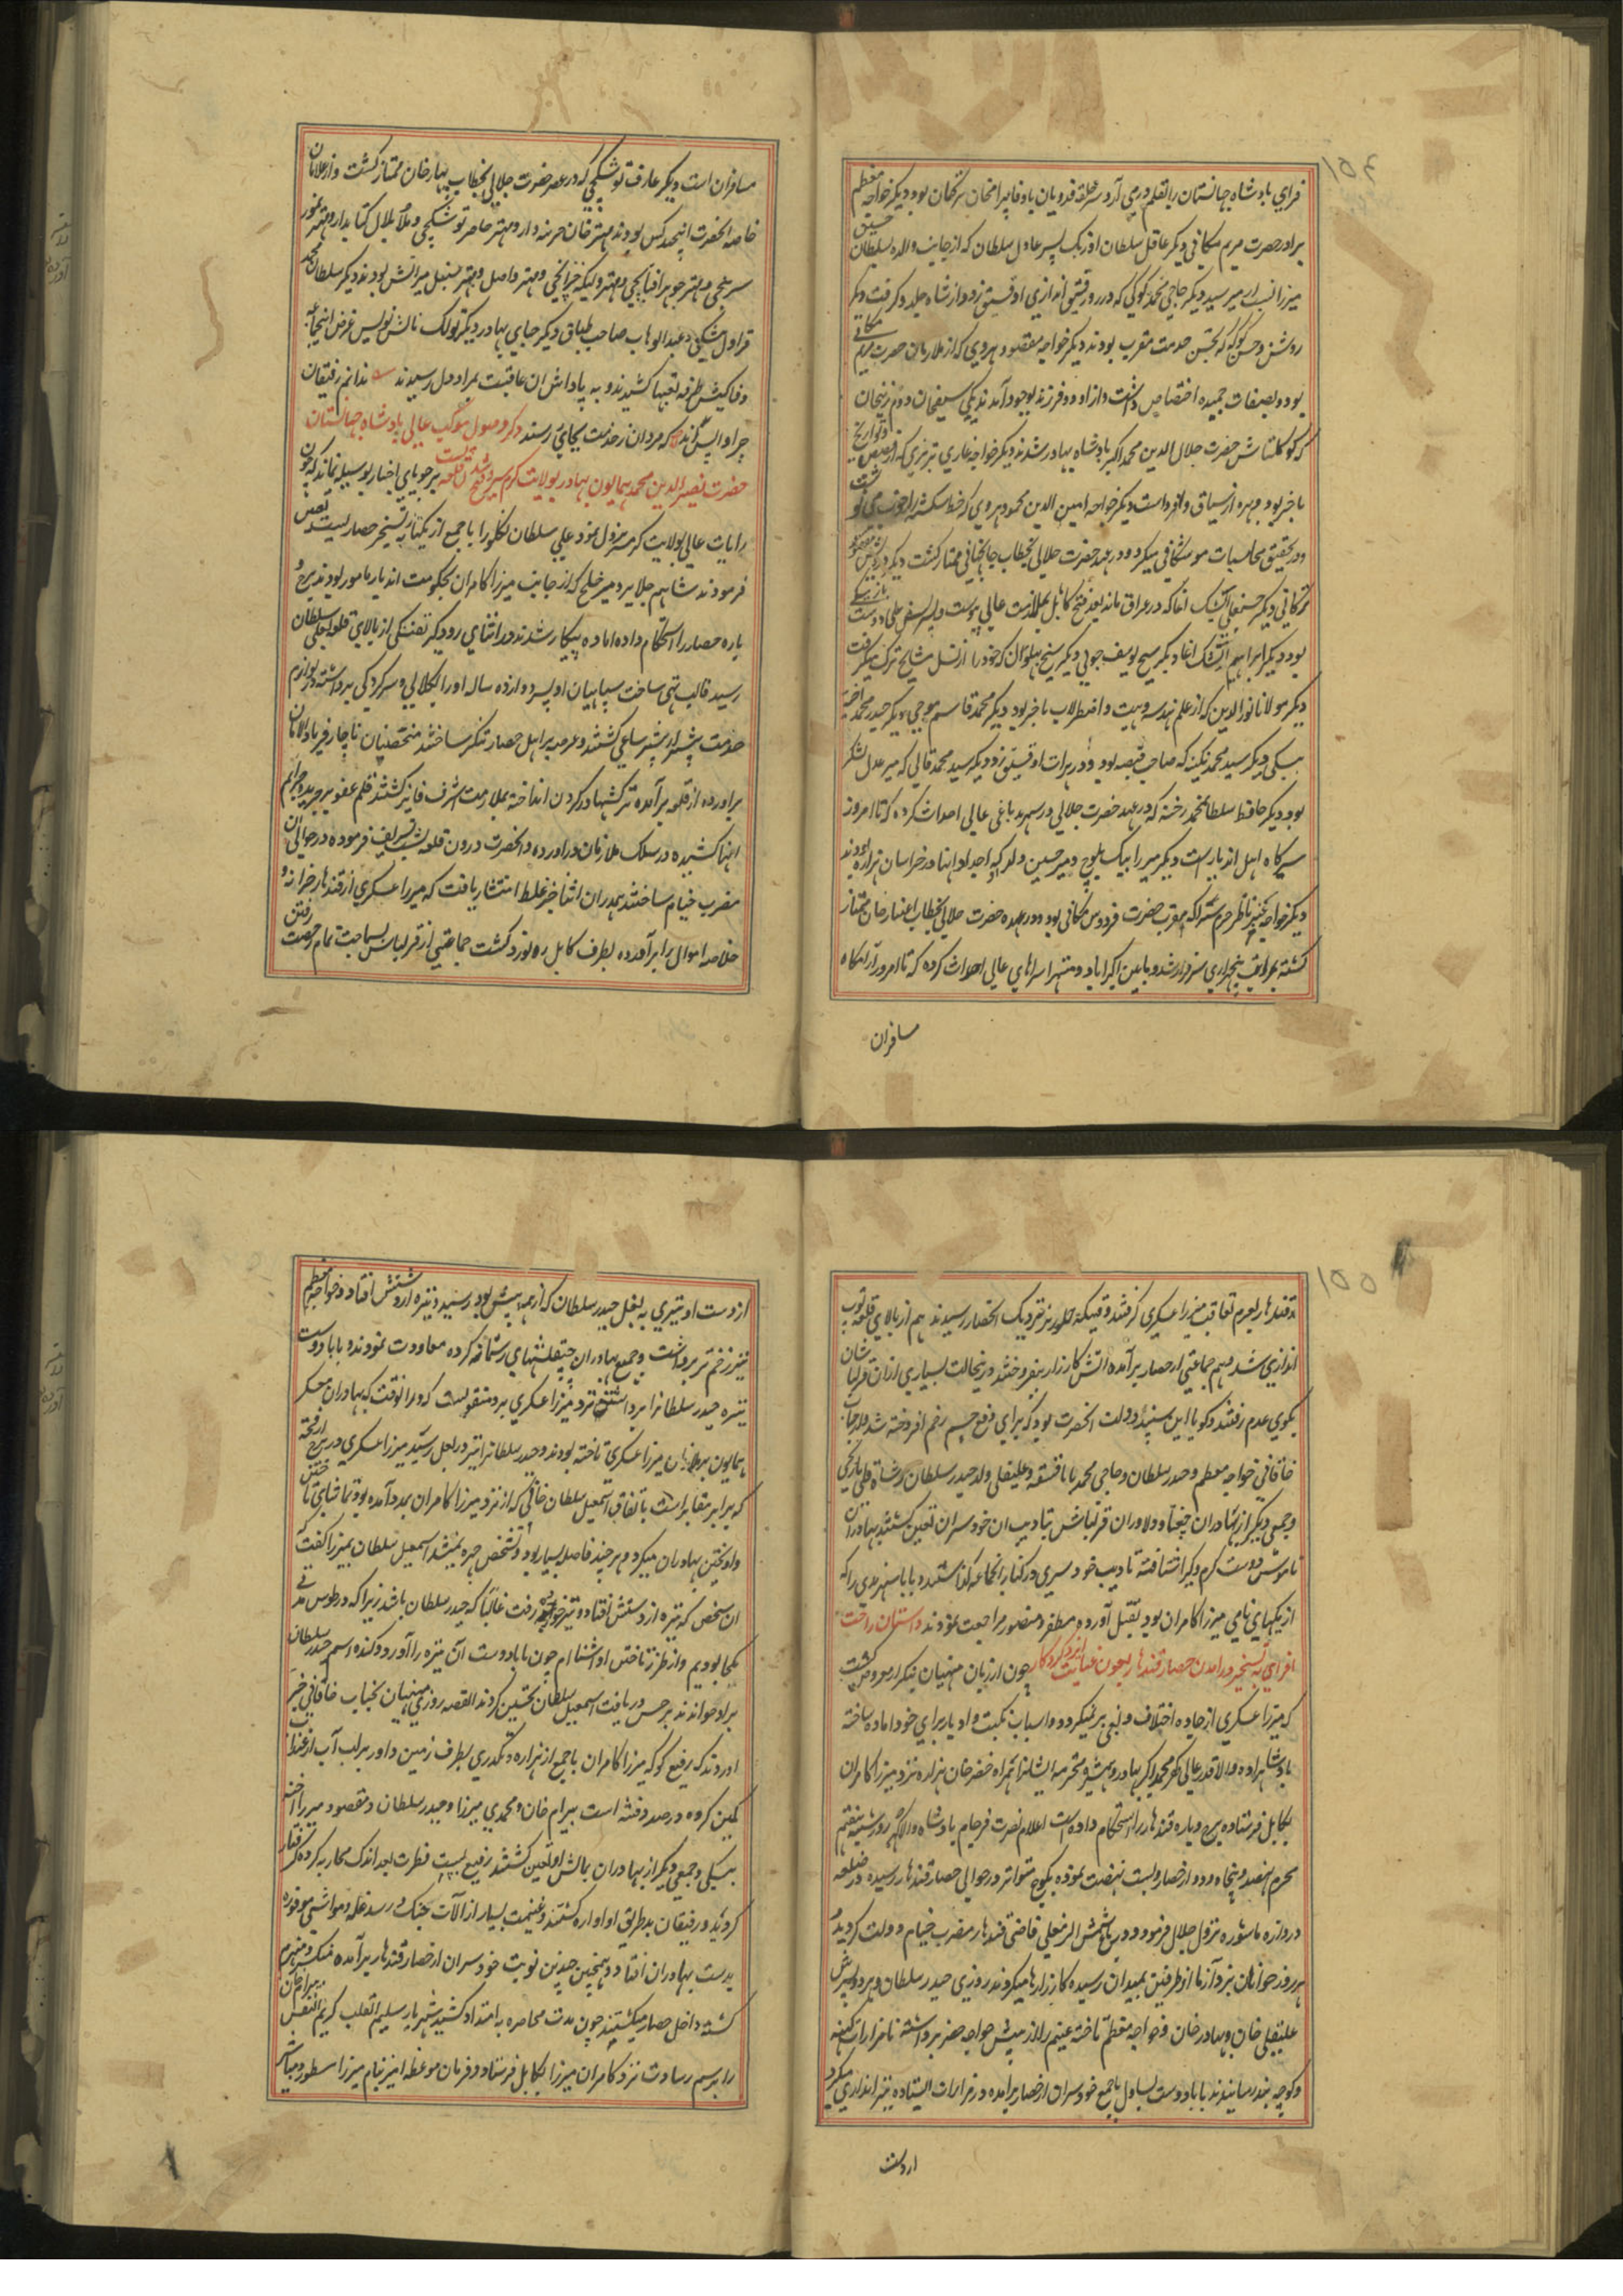 ۱۵۴
فرای بادشاه جهانستان را بقلم درمی آرد سر حلقه فدویان باوفا بیرامخان ترکمان بود دیگر خواجه معظم
برادر حضرت مریم مکانی دیگر عاقل سلطان اوزبک پسر عادل سلطان که از جانب والده بسلطان حسین
میرزا نسبت او میرسید دیگر حاجی محمد کوکی که در روز قبق اندازی او قبق زد و از شاه جلدو گرفت دیگر
روشن و حسن کوکه که بحسن خدمت مقرب بودند دیگر خواجه مقصود هروی که از ملازمان حضرت مریم مکانی
بود و بصفات حمیده اختصاص داشت و از او دو فرزند بوجود آمدند یکی سیفخان دوم زینخان
که کوکلتاش حضرت جلال الدین محمد اکبر بادشاه بهادر شدند دیگر خواجه غازی تبریزی که از قصص و تواریخ
باخبر بود و بهره از سیاق وافر داشت دیگر خواجه امین الدین محمود هروی که خط شکسته را خوب می نوشت
و در تحقیق محاسبات موشکافی میکرد و در عهد حضرت جلالی بخطاب جانجهانی ممتاز گشت دیگر درویش مقصود
بنگالی دیگر حسنعلی آیشک اغا که در عراق مانده بعد فتح کابل بملازمت عالی پیوست و پسرش علی دوست
بود دیگر ابراهیم آیشک اغا دیگر شیخ یوسف جولی دیگر شیخ بهلول که خود را از نسل مشایخ ترک میگرفت
دیگر مولانا نورالدین که از علم هندسه و هیت و اصطرلاب باخبر بود دیگر محمد قاسم موجی دیگر حیدر محمد اخته
بیگی دیگر سید محمد پکنه که صاحب قبضه بود و در هرات او قبق زد دیگر سید محمد قالی که میر عدل لشکر
بود دیگر حافظ سلطان محمد رخنه که در عهد حضرت جلالی در سهرند باغی عالی احداث کرده که تا امروز
سیرگاه اهل اندیار است دیگر میرزا بیک بلوچ و میر حسین ولد که اجداد اینها در خراسان بودند
دیگر خواجه عنبر ناظر حرم سرا که مقرب حضرت فردوس مکانی بود و در عهد حضرت جلالی بخطاب اعتبار خان ممتاز
گشته بمراتب پنجهزاری سرفراز شد و مابین اکبراباد و متهرا سراهای عالی احداث کرده که تا امروز آرامگاه
مسافران
مسافران است دیگر عارف توشکچی که در عصر حضرت جلالی بخطاب بهار خان ممتاز گشت و از غلامان
خاصه انحضرت اینچند کس بودند مهتر خان خزینه دار و مهتر حاصر توشکچی و ملا بلال کتابدار و مهتر تیمور
شربتچی و مهتر جوهر افتابچی و مهتر وکیله خزانچی و مهتر واصل و مهتر سنبل میرآتش بودند دیگر سلطان محمد
قراول بیگی و عبدالوهاب صاحب طباق دیگر جابی بهادر دیگر تولک یاتش نویس غرض اینجماعه
وفاکیش طرفه تعبها کشیدند و به پاداش ان عاقبت بمراد دل رسیدند ندانم رفیقان
چرا واپس اند که مردان ز خدمت بجای رسند ذکر وصول موکب عالی بادشاه جهانستان
حضرت نصیرالدین محمد همایون بهادر بولایت گرمسیر و فتح شدن قلعه بست بر جویای اخبار پوشیده نماند که چون
رایات عالی بولایت گرمسیر نزول نمود علی سلطان تکلو را با جمع از یکتایان بتسخیر حصار بست تعین
فرمودند شاهم جلایر و میر خلج که از جانب میرزا کامران بحکومت اندیار مامور بودند برج و
باره حصار را استحکام داده اماده پیکار شدند در اثنای زدوگیر تفنگی از بالای قلعه بعلی سلطان
رسید قالب تهی ساخت سپاهیان او پسر دوازده ساله او را بکلانی و سرکردگی برداشته در لوازم
خدمت پیشتر از پیشتر ساعی گشتند و عرصه بر اهل حصار تنگ ساختند متحصنان ناچار فریاد الامان
براورده از قلعه برآمده ترکشها در گردن انداخته بملازمت اشرف فایز گشتند قلم عفو بر جریده جرایم
اینها کشیده در سلک ملازمان دراورده و انحضرت درون قلعه بست تشریف فرموده در حوالی ان
مضرب خیام ساختند بدران اثنا خبر غلط انتشار یافت که میرزا عسکری از قندهار خزانه و
خلاصه اموال برابر آورده بطرف کابل ره نورد گشت جماعتی از قزلباش بسماجت تمام رخصت رفتن
۱۵۵
قندهار بعزم تعاقب میرزا عسکری گرفتند وقتیکه جلوریز نزدیک انحصار رسیدند هم از بالای قلعه توپ
اندازی شد و هم جماعتی از حصار برآمده اتش کارزار برافروختند در ینحالت بسیاری از ان قزلباشان
بکوی عدم رفتند و گویا این سپند دولت انحضرت بود که برای دفع چشم زخم افروخته شد از جانب
خاقانی خواجه معظم و حیدر سلطان و حاجی محمد بابا قشقه و علیقلی ولد حیدر سلطان و شاه قلی نارنجی
و جمعی دیگر از بهادران چغتا و دلاوران قزلباش بتادیب ان خودسران تعین گشتند بهادران
ناموس دوست گرم و گیرا شتافته تادیب خودسری در کنار انجماعه گذاشتند و بابا سهرندی را که
از یکه‌های نامی میرزا کامران بود بقتل آورده مظفر و منصور مراجعت نمودند داستان راحت
افزای به تسخیر درامدن حصار قندهار بعون عنایت ایزد کردگار چون از زبان منهیان بتکرار معروض گشت
که میرزا عسکری از جاده اختلاف و بغی برنمیگردد و اسباب نکبت و ادبار برای خود اماده ساخته
بادشاهزاده والاقدر عالی گهر محمد اکبر بهادر و همشیره محترمه ایشان را همراه خضر خان هزاره نزد میرزا کامران
بکابل فرستاده برج و باره قندهار را استحکام داده است اعلام نصرت فرجام بادشاه والاگهر روز شنبه هفتم
محرم نهصد و پنجاه و دو از حصار بست نهضت نموده بکوچ متواتر در حوالی حصار قندهار رسیده در ضلع
دروازه ماشوره نزول جلال فرمود و در باغ شمس الدین علی قاضی قندهار مضرب خیام دولت گردید
هر روز جوانان نبرد آزما از طرفین بمیدان رسیده کارزارها میکردند روزی حیدر سلطان و هر دو پسرش
علیقلی خان و بهادر خان و خواجه معظم تاخته غنیم را از پیش خواجه خضر برداشته تا مزارات کهنه
و کوچه بند رسانیدند بابا دوست یساول با جمع خودسران از حصار برآمده در مزارات ایستاده تیراندازی میکرد
از دست
از دست او تیری به بغل حیدر سلطان که از همه پیش بود رسید و نیزه از دستش افتاد و خواجه معظم
نیز زخم تیر برداشت و جمیع بهادران چپقلشهای رستمانه کرده معاودت نمودند و بابا دوست
نیزه حیدر سلطانرا برداشته نزد میرزا عسکری برد منقولست که در انوقت که بهادران معسکر
همایون بر ملازمان میرزا عسکری تاخته بودند و حیدر سلطانرا تیر در بغل رسید میرزا عسکری در برج
که برابر مقابر است باتفاق اسمعیل سلطان خافی که از نزد میرزا کامران بمدد آمده بود تماشای تاختن
و اویختن بهادران میکرد و هرچند فاصله بسیار بود و تشخص چهره نمیشد اسمعیل سلطان بمیرزا گفت
ان شخص که نیزه از دستش افتاده تیز رفت غالبا که حیدر سلطان باشد زیرا که در طوس مدتی
یکجا بودیم و از طرز تاختن او اشناام چون بابا دوست آن نیزه را آورد و کنده اسم حیدر سلطان
برو خواندند بر حسن دریافت اسمعیل سلطان تحسین کردند القصه روزی منهیان بجناب خاقانی خبر
اوردند که رفیع کوکه میرزا کامران با جمع از هزاره و نکدری بطرف زمین داور بر لب آب ارغنداب
کمین کرده در صدد فتنه است بیرام خان و محمدی میرزا و حیدر سلطان و مقصود میرزا اخته
بیگی و جمعی دیگر از بهادران بمالش او تعین گشتند رفیع پست فطرت بعد اندک محاربه کرده گرفتار
گردید و رفیقان بد طریق او آواره گشتند و غنیمت بسیار از آلات جنگ و رسد غله و مواشی موفوره
بدست بهادران افتاد و همچنین چندین نوبت خودسران از حصار قندهار برآمده شکست و منهزم
گشته داخل حصار میگشتند چون مدت محاصره به امتداد کشید شهریار سلیم القلب کریم النفس بیرام خان
را برسم رسالت نزد کامران میرزا بکابل فرستاد و فرمان موعظه امیز بنام میرزا مسطور